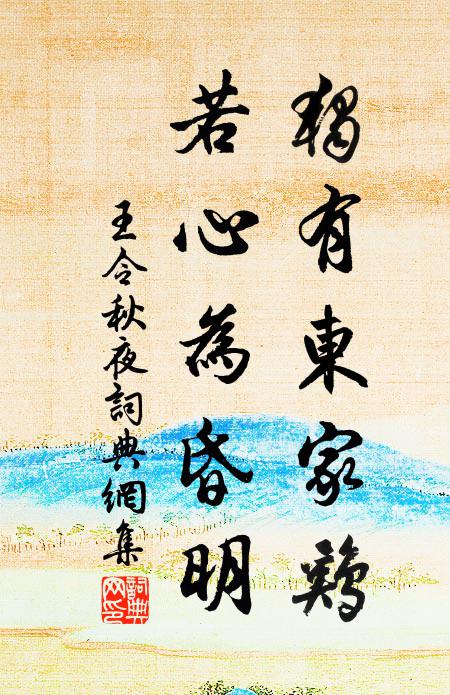 獨有東家鷄
若心為昏明
王令秋夜詞典網集
詞典